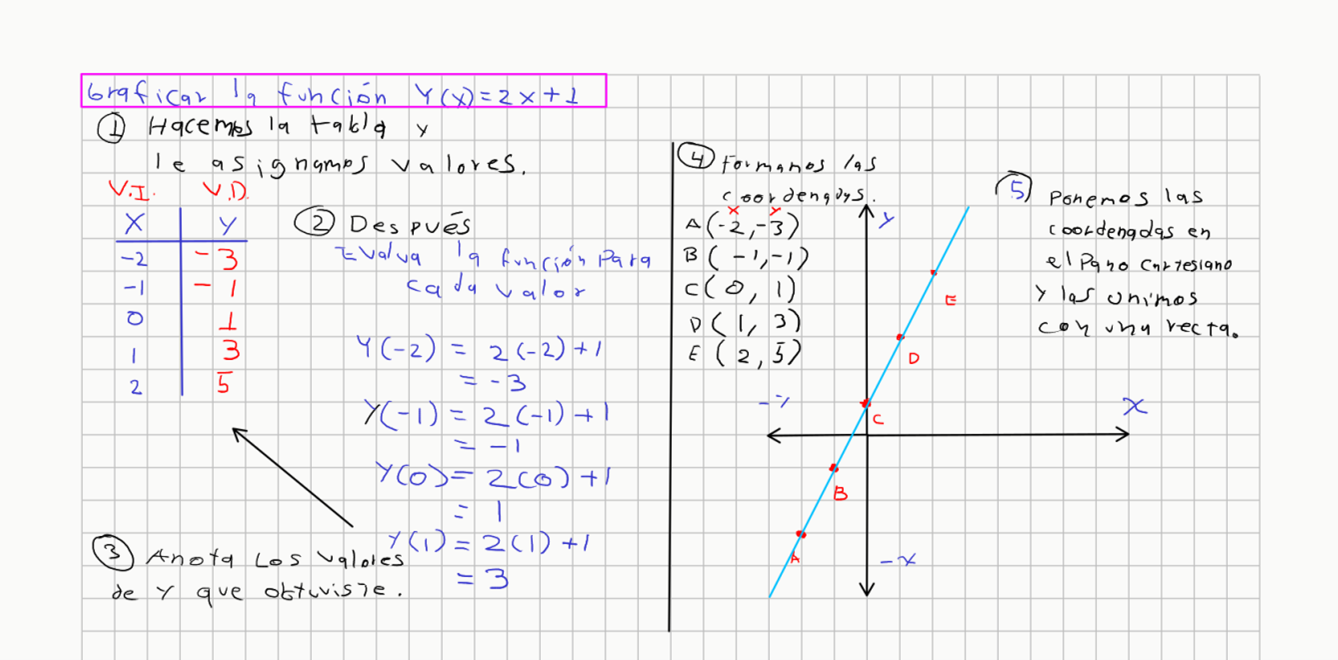 Graficar la función Y(x)=2x+1
① Hacemos la tabla y
le asignamos valores.
V.I. V.D.
X Y
-2 -3
-1 -1
0 1
1 3
2 5
② Después
Evalua la función Para
cada valor
Y(-2) = 2(-2)+1
= -3
Y(-1) = 2(-1)+1
= -1
Y(0) = 2(0)+1
= 1
Y(1) = 2(1)+1
= 3
③ Anota Los valores
de Y que obtuviste.
④ Formamos las
coordenadas.
x y
A(-2,-3)
B(-1,-1)
C(0, 1)
D(1, 3)
E(2, 5)
⑤ Ponemos las
coordenadas en
el Pano Cartesiano
y las unimos
con una recta.
y
E
D
C
x
B
A
-x